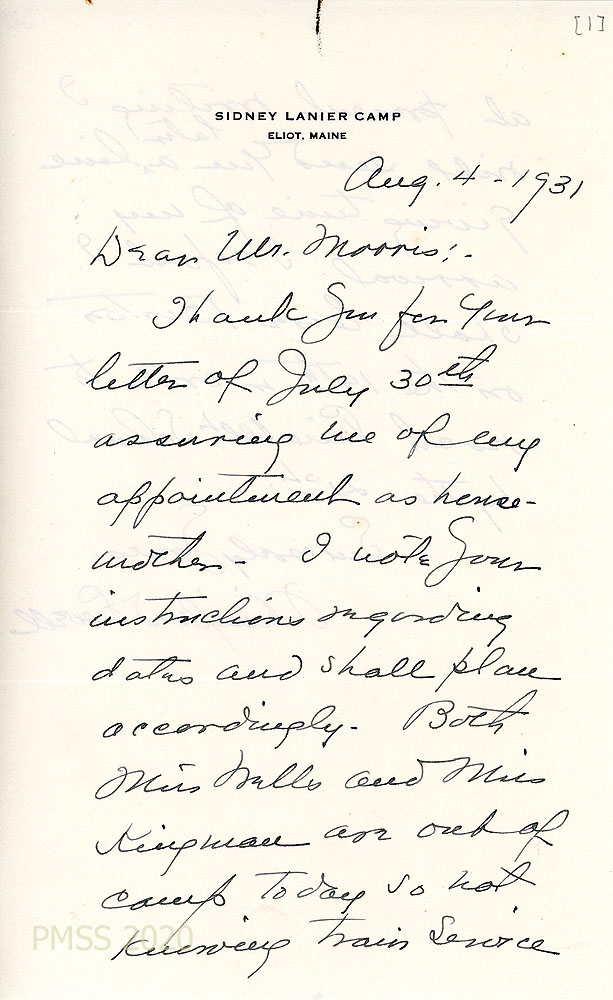 [1]
SIDNEY LANIER CAMP
ELIOT, MAINE
Aug. 4 - 1931
Dear Mr. Morris:-
Thank you for your
letter of July 30th
assuring me of my
appointment as house-
mother - I note your
instructions regarding
dates and shall plan
accordingly - Both
Miss Wells and Miss
Kingman are out of
camp today so not
knowing train service
PMSS 2020